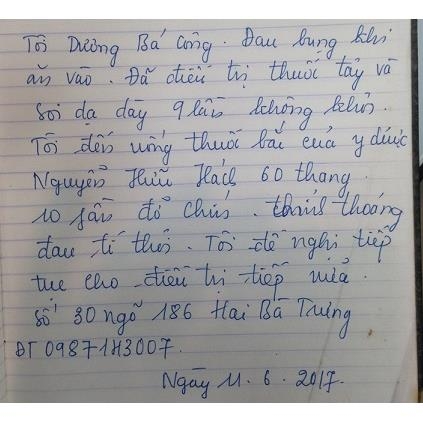 Tôi Dương Bá Công. Đau bụng khi
ăn vào. Đã điều trị thuốc tây và
soi dạ dày 9 lần không khỏi.
Tôi đến uống thuốc bắc của y dược
Nguyễn Hữu Hách 60 thang.
10 phần đỡ chín. thỉnh thoảng
đau tí thôi. Tôi đề nghị tiếp
tục cho điều trị tiếp nữa.
Số 30 ngõ 186 Hai Bà Trưng
ĐT 0987183007.
Ngày 11.6.2017.